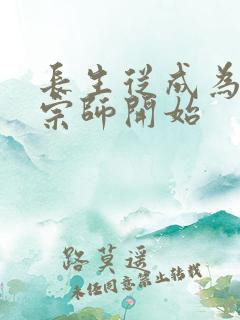 長生從成為
宗師開始
路莫遥
未经同意禁止转载